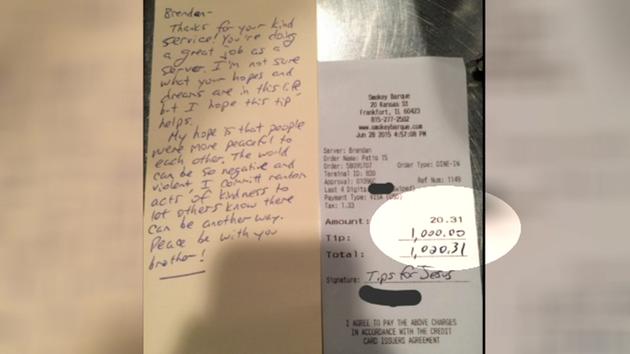 Brendan-
Thanks for your kind
service! You're doing
a great job as a
server. I'm not sure
what your hopes and
dreams are in this life
but I hope this tip
helps.
My hope is that people
were more peaceful to
each other. The world
can be so negative and
violent I committ random
acts of kindness to
let others know there
can be another way.
Peace be with you
brother!
Smokey Barque
20 Kansas St
Frankfort, IL 60423
815-277-2502
www.smokeybarque.com
Jun 28 2015 4:57:08 PM
Server: Brendan
Order Name: Patio 15
Order: Order Type: DINE-IN
Terminal ID: 
Approval: Ref Num: 1149
Last 4 Digits
Payment Type: VISA
Tax: 1.33
Amount: 20.31
Tip: 1,000.00
Total: 1,020.31
Signature: Tips for Jesus
I AGREE TO PAY THE ABOVE CHARGES
IN ACCORDANCE WITH THE CREDIT
CARD ISSUERS AGREEMENT